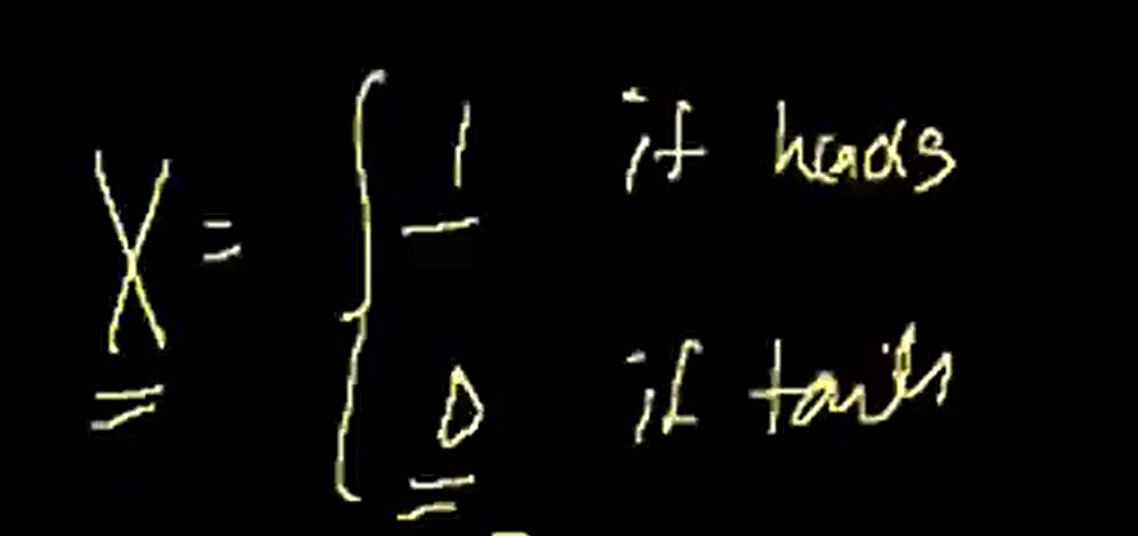 X = { 1 if heads
0 if tails